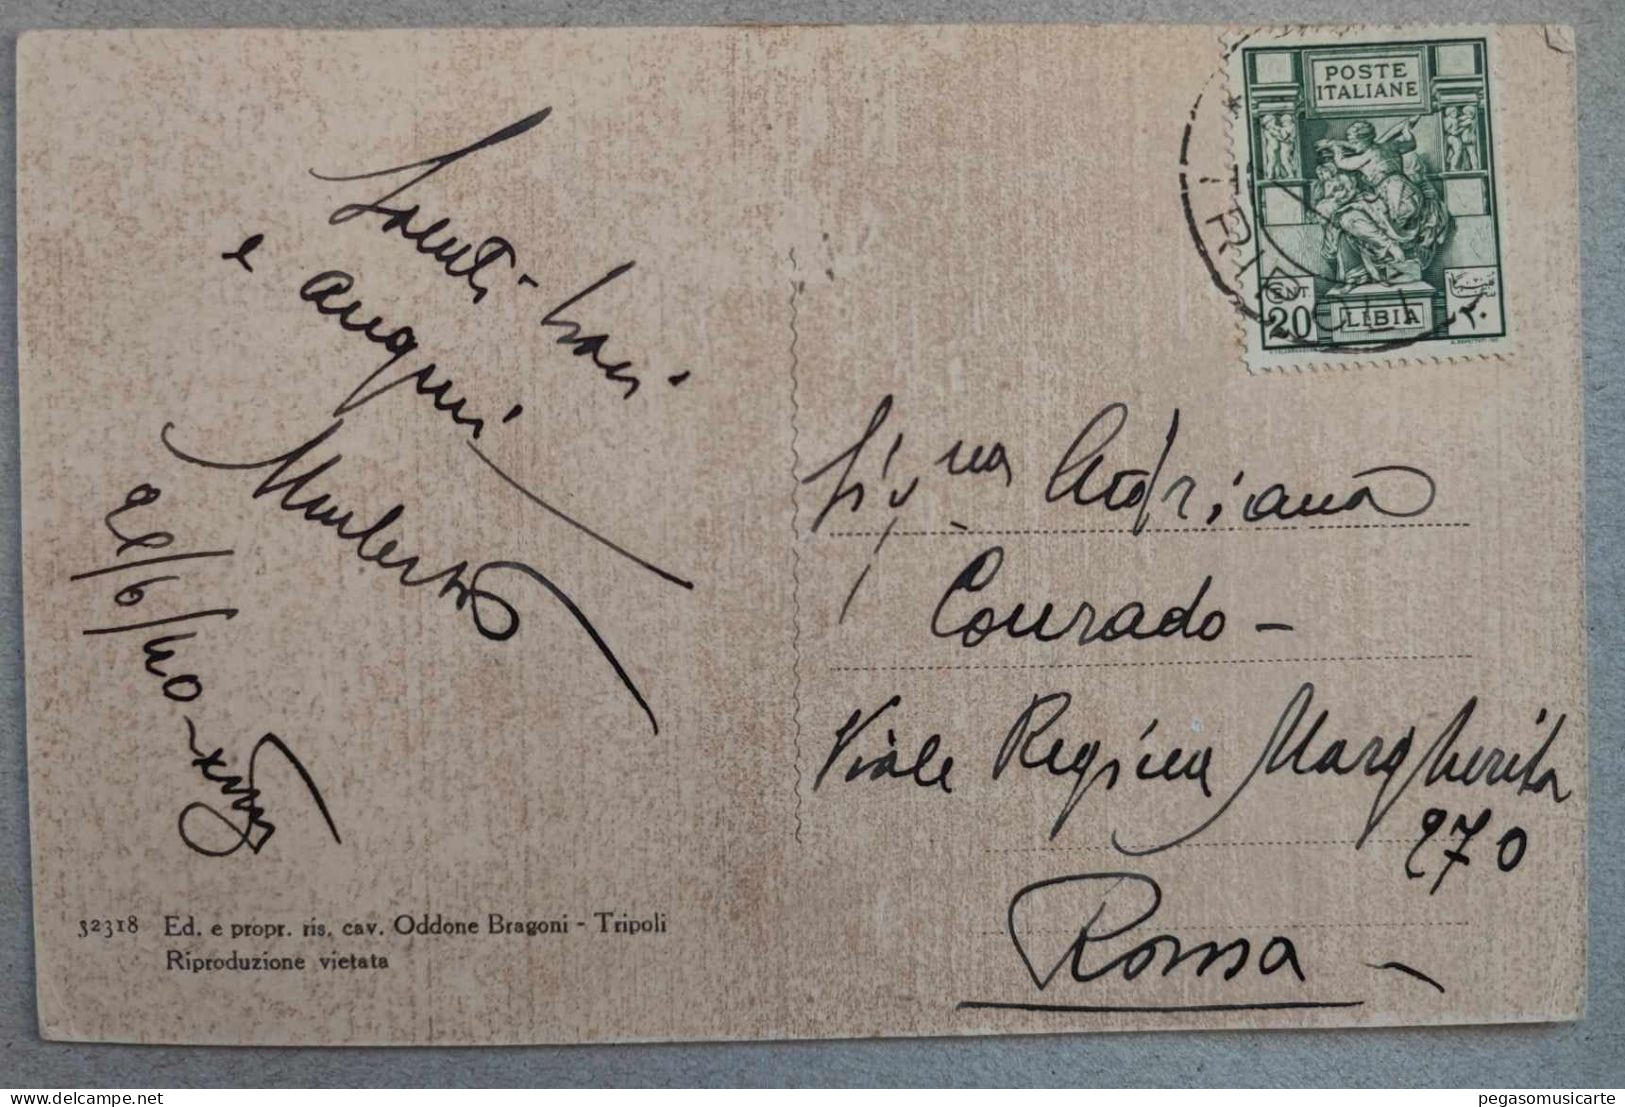 Saluti - baci -
e auguri
Umberto
26/6/40 - XVIII
32318 Ed. e propr. ris. cav. Oddone Bragoni - Tripoli
Riproduzione vietata
POSTE
ITALIANE
CENT.
20
LIBIA
٢٠
TRIPOLI
Sig.na Adriana
Corrado -
Viale Regina Margherita
270
Roma -
pegasomusicarte